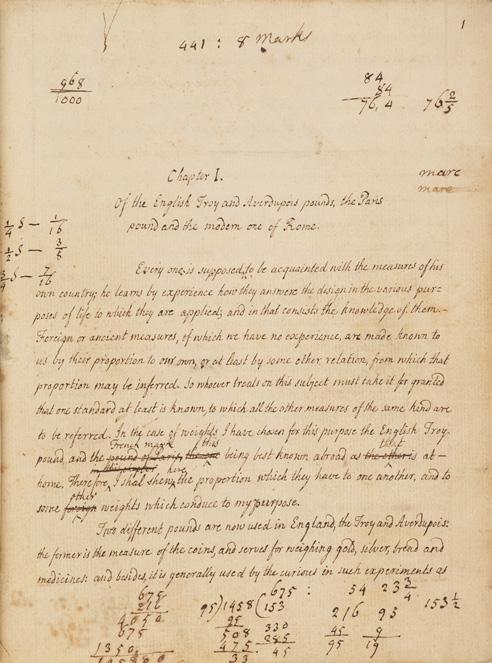 1
441 : 8 Mark
968
1000
84
84
76,4
76 2/5
Chapter I.
marc
marc
Of the English Troy and Averdupois pounds, the Paris
pound and the modern one of Rome.
1/4 S — 1/16
1/2 S — 3/8
S — 7/16
Every one is supposed to be acquainted with the measures of his
own country; he learns by experience how they answere the design in the various pur=
poses of life to which they are applied; and in that consists the knowledge of them.
Foreign or ancient measures, of which we have no experience, are made known to
us by their proportion to our own, or at least by some other relation, from which that
proportion may be inferred. So whoever treats on this subject must take it for granted
that one standard at least is known, to which all the other measures of the same kind are
to be referred. In the case of weights I have chosen for this purpose the English Troy
French mark this that
pound, and the pound of Paris, the one being best known abroad as the other is at
in this chapter here
home. Therefore, I shall shew the proportion which they have to one another, and to
other
some foreign weights which conduce to my purpose.
Two different pounds are now used in England, the Troy and Averdupois:
the former is the measure of the coins, and serves for weighing gold, silver, bread and
medicines: and besides, it is generally used by the curious in such experiments as
675
216
4050
675
1350
95)1458(153
95
508
475
33
675 :
330
285
45
54 23 3/4
216 95
45 9
95 19
153 1/2